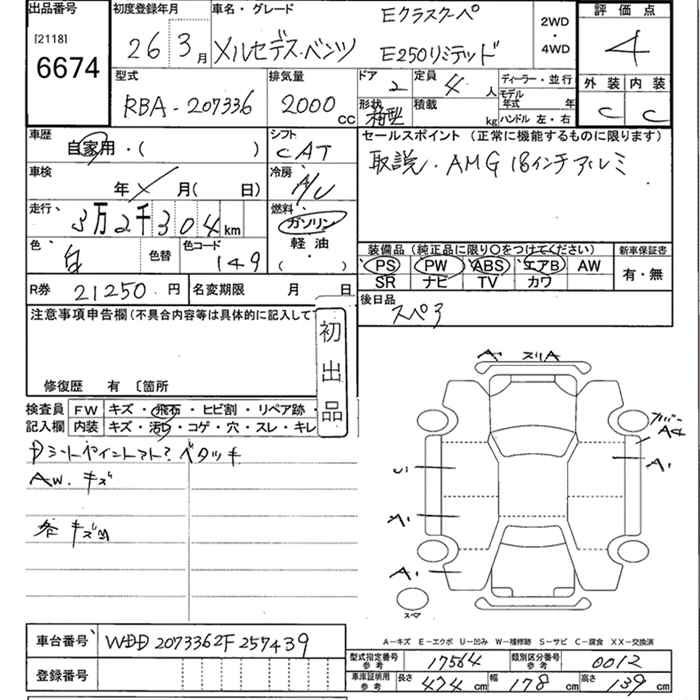 出品番号 初度登録年月 車名・グレード Eクラスクーペ 2WD ・ 4WD 評価点
[2118] 6674 26 3月 メルセデス・ベンツ E250リミテッド 4
型式 排気量 ドア 定員 ディーラー・並行 外装 内装
RBA-207336 2000cc 2 4人 モデル年式 年 C C
形状 箱型 積載 kg ハンドル 左・右
車歴 シフト セールスポイント (正常に機能するものに限ります)
自家用・( ) CAT 取説・AMG 18インチアルミ
車検 年 月( 日) 冷房
走行、 3万2千304km 燃料 ガソリン
軽油・( )
色、 白 色替 色コード 149
装備品 (純正品に限り○をつけてください) 新車保証書
PS PW ABS エアB AW 有・無
SR ナビ TV カワ
R券 21250円 名変期限 月 日 後日品
スペア
注意事項申告欄(不具合内容等は具体的に記入して
初出品
修復歴 有 〔箇所
検査員 FW キズ・飛石・ヒビ割・リペア跡・
記入欄 内装 キズ・汚れ・コゲ・穴・スレ・キレ
AW. キズ
各 キズ
A スリA
A4
A'
U'
A'
A'
スペア
A-キズ E-エクボ U-凹み W-補修跡 S-サビ C-腐食 XX-交換済
車台番号 WDD2073362F257439
型式指定番号 参考 17564 類別区分番号 参考 0012
登録番号
車庫証明用 参考 長さ 474cm 幅 178cm 高さ 139cm